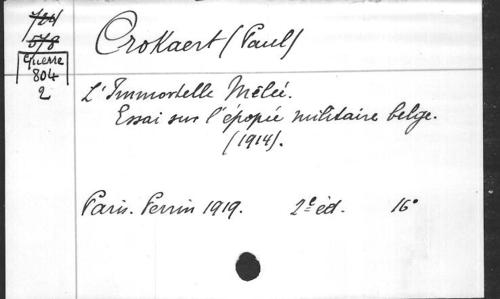 Crokaert (Paul)
Guerre
804
2
L'Immortelle Mêlée.
Essai sur l'épopée militaire belge.
(1914).
Paris. Perrin 1919. 2e éd. 16°